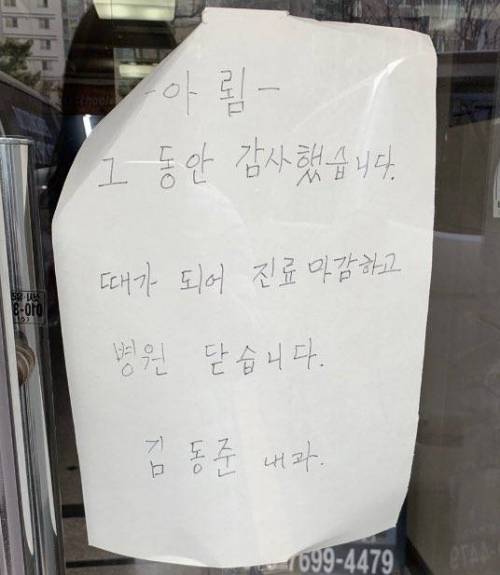 -아 림-
그 동안 감사했습니다.
때가 되어 진료 마감하고
병원 닫습니다.
김 동준 내과.
7699-4479